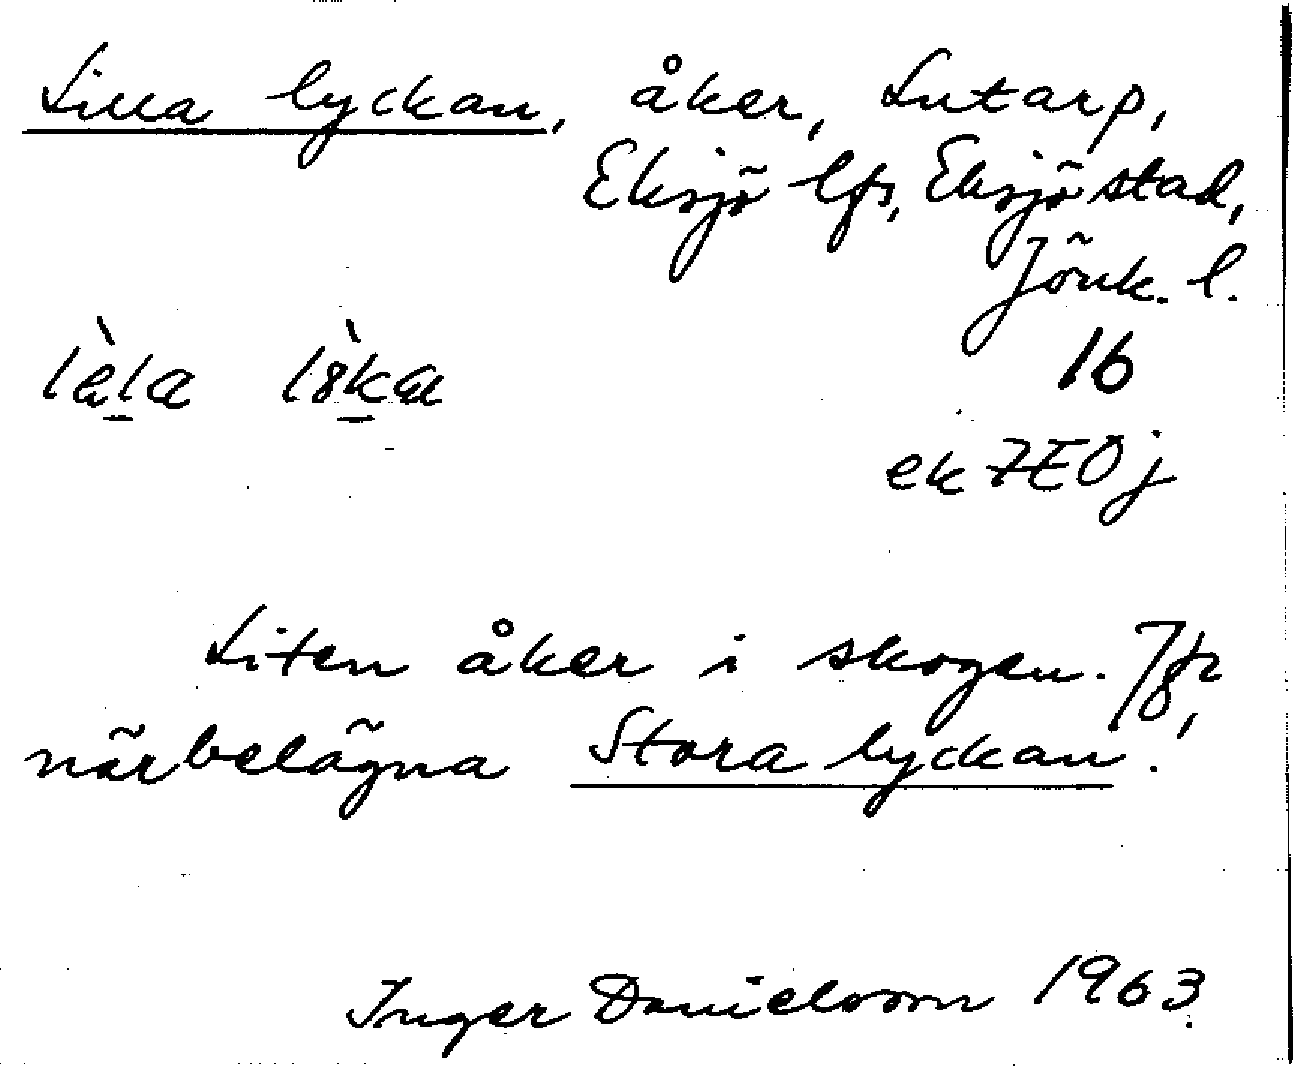 Lilla lyckan, åker, Lutarp,
Eksjö lfs, Eksjö stad,
Jönk. l.
16
ek 7E0j
Liten åker i skogen. Jfr
närbelägna Stora lyckan.
Inger Danielsson 1963.